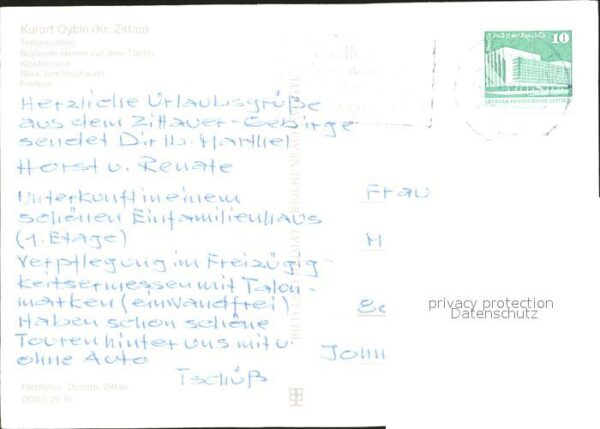 Kurort Oybin (Kr. Zittau)
Teilansichten
Brütende Henne auf dem Töpfer
Klosterruine
Blick zum Hochwald
Freibad
Herzliche Urlaubsgrüße
aus dem Zittauer-Gebirge
sendet Dir lb.
Horst u. Renate
Unterkunft in einem
schönen Einfamilienhaus
(1. Etage)
Verpflegung im Freizügig-
keitsermessen mit Talon-
marken (einwandfrei)
Haben schon schöne
Touren hinter uns mit u.
ohne Auto
Tschüß
Frau
H
John
10
privacy protection
Datenschutz
Farbfotos: Zittau
DDR 0,20 M